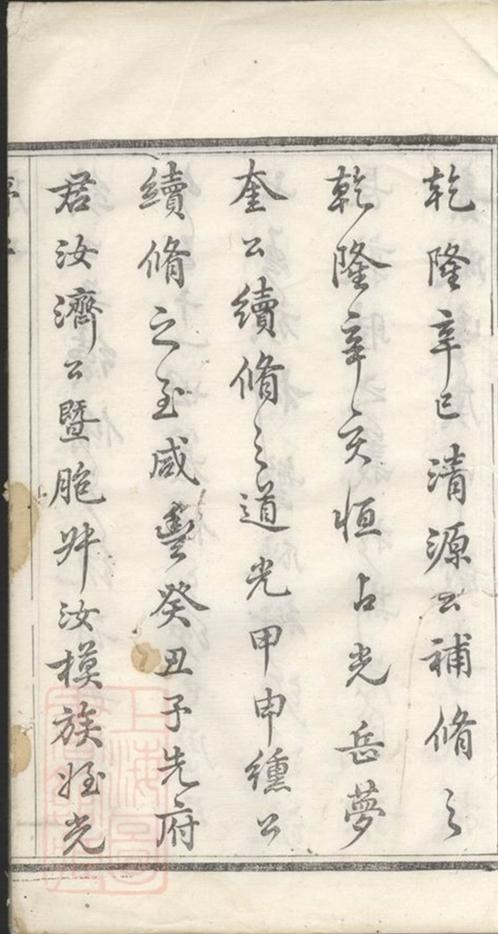 乾隆辛巳清源公補脩之
乾隆辛亥恒占光岳夢
奎公續脩之道光甲申纁公
續脩之至咸豐癸丑予先府
君汝濟公暨胞叔汝模族姪光